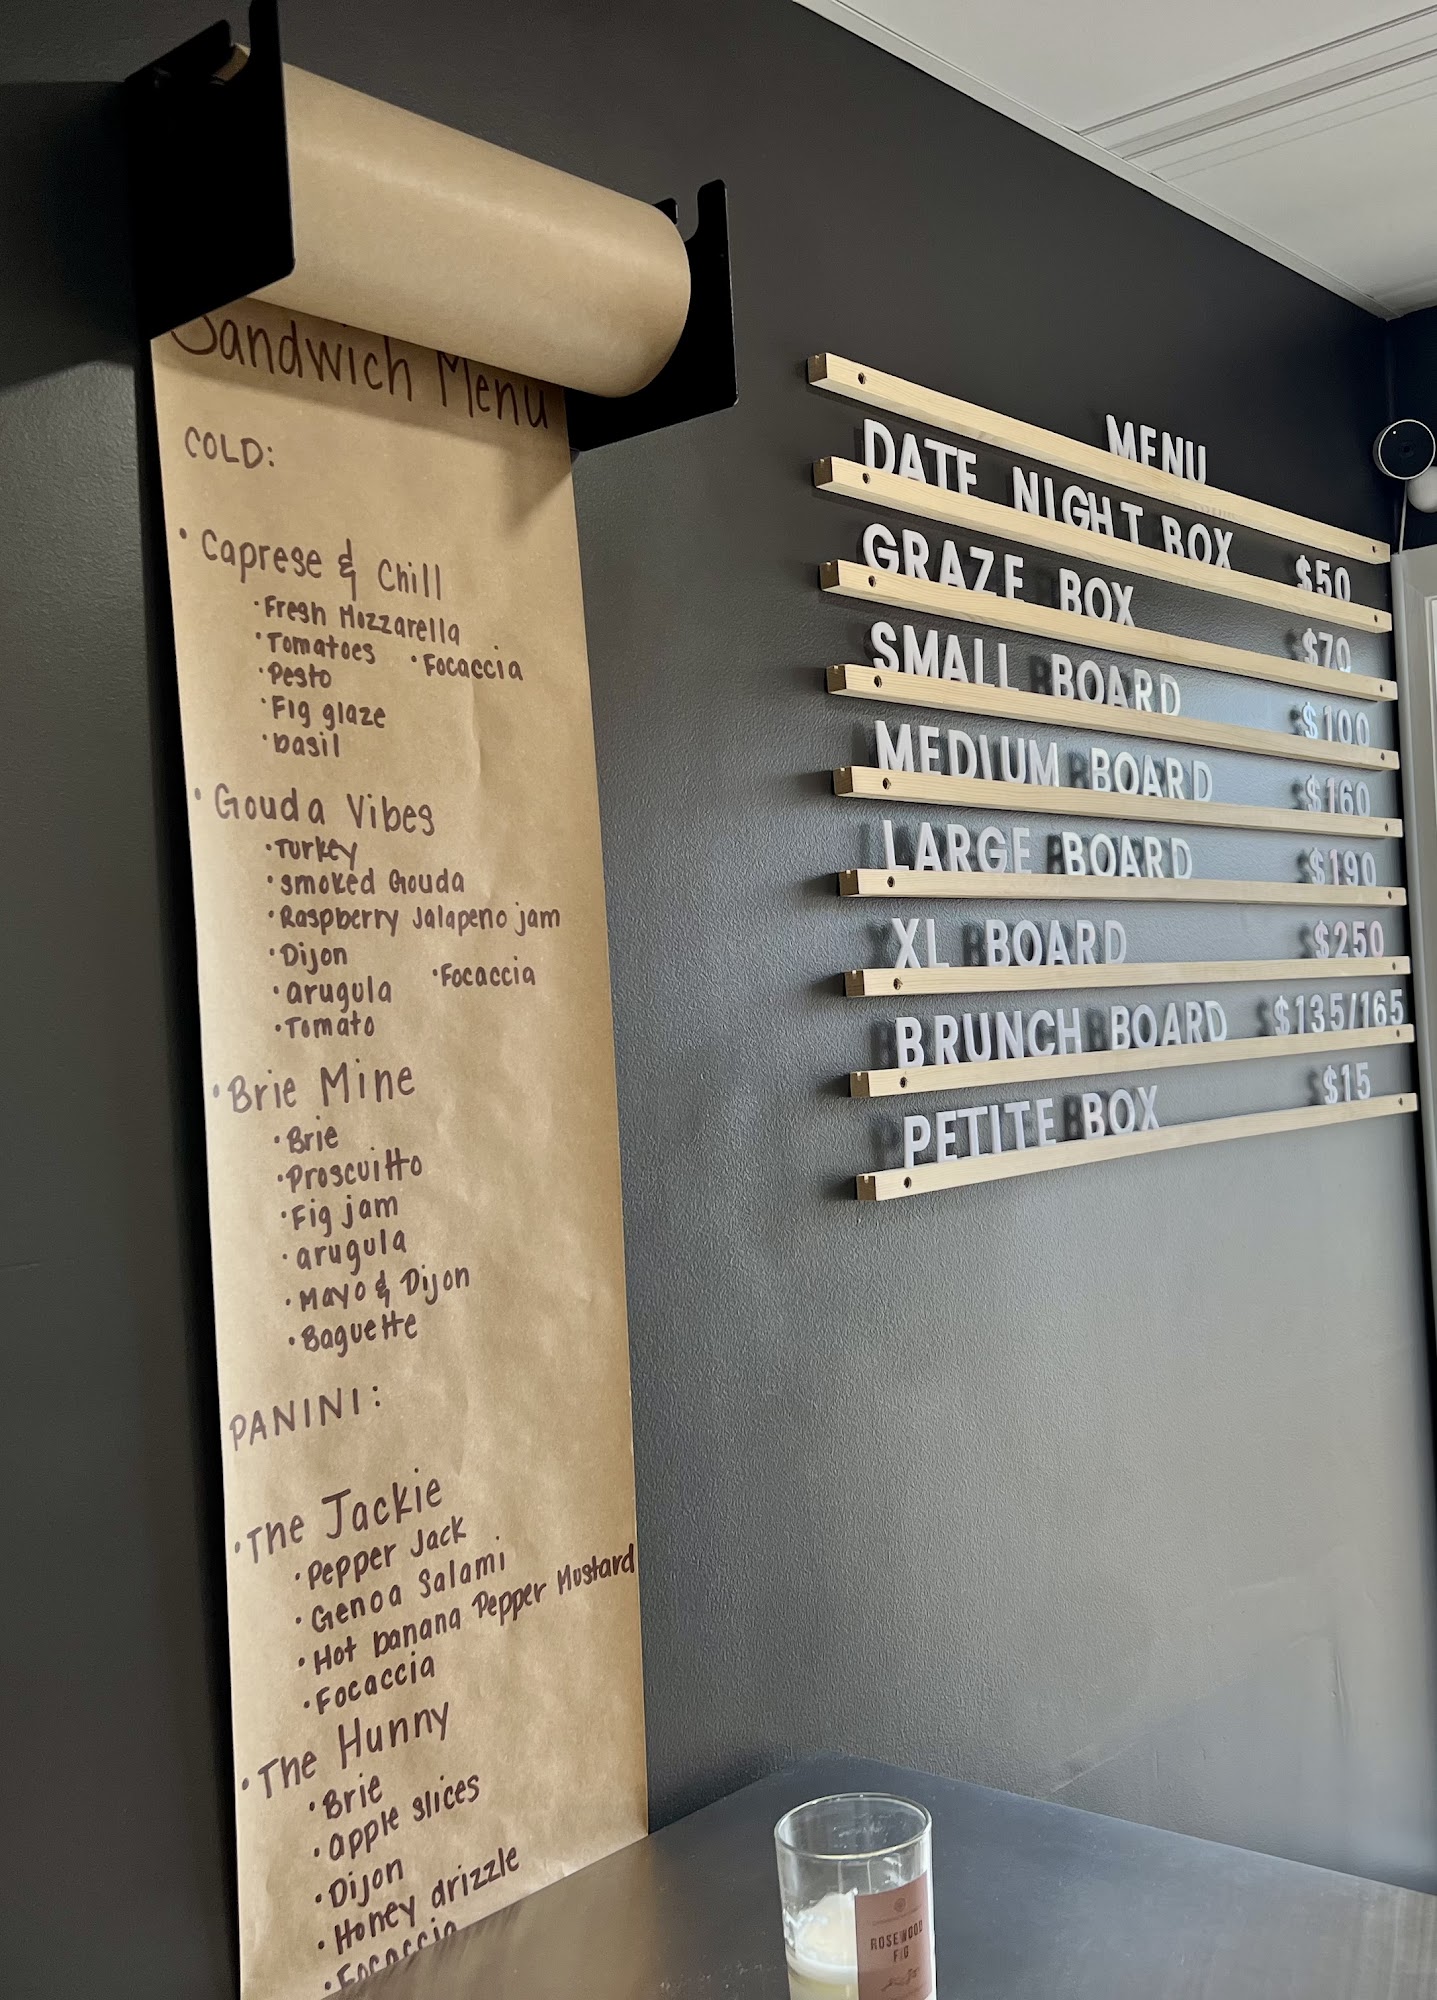 Sandwich Menu
COLD:
• Caprese & Chill
• Fresh Mozzarella
• Tomatoes • Focaccia
• Pesto
• Fig glaze
• basil
• Gouda Vibes
• Turkey
• smoked Gouda
• Raspberry Jalapeno jam
• Dijon
• arugula • Focaccia
• Tomato
• Brie Mine
• Brie
• Proscuitto
• Fig jam
• arugula
• Mayo & Dijon
• Baguette
PANINI:
• The Jackie
• Pepper Jack
• Genoa Salami
• Hot banana Pepper Mustard
• Focaccia
• The Hunny
• Brie
• apple slices
• Dijon
• Honey drizzle
• Focaccia
MENU
DATE NIGHT BOX $50
GRAZE BOX $70
SMALL BOARD $100
MEDIUM BOARD $160
LARGE BOARD $190
XL BOARD $250
BRUNCH BOARD $135/165
PETITE BOX $15
ROSEWOOD
FIG